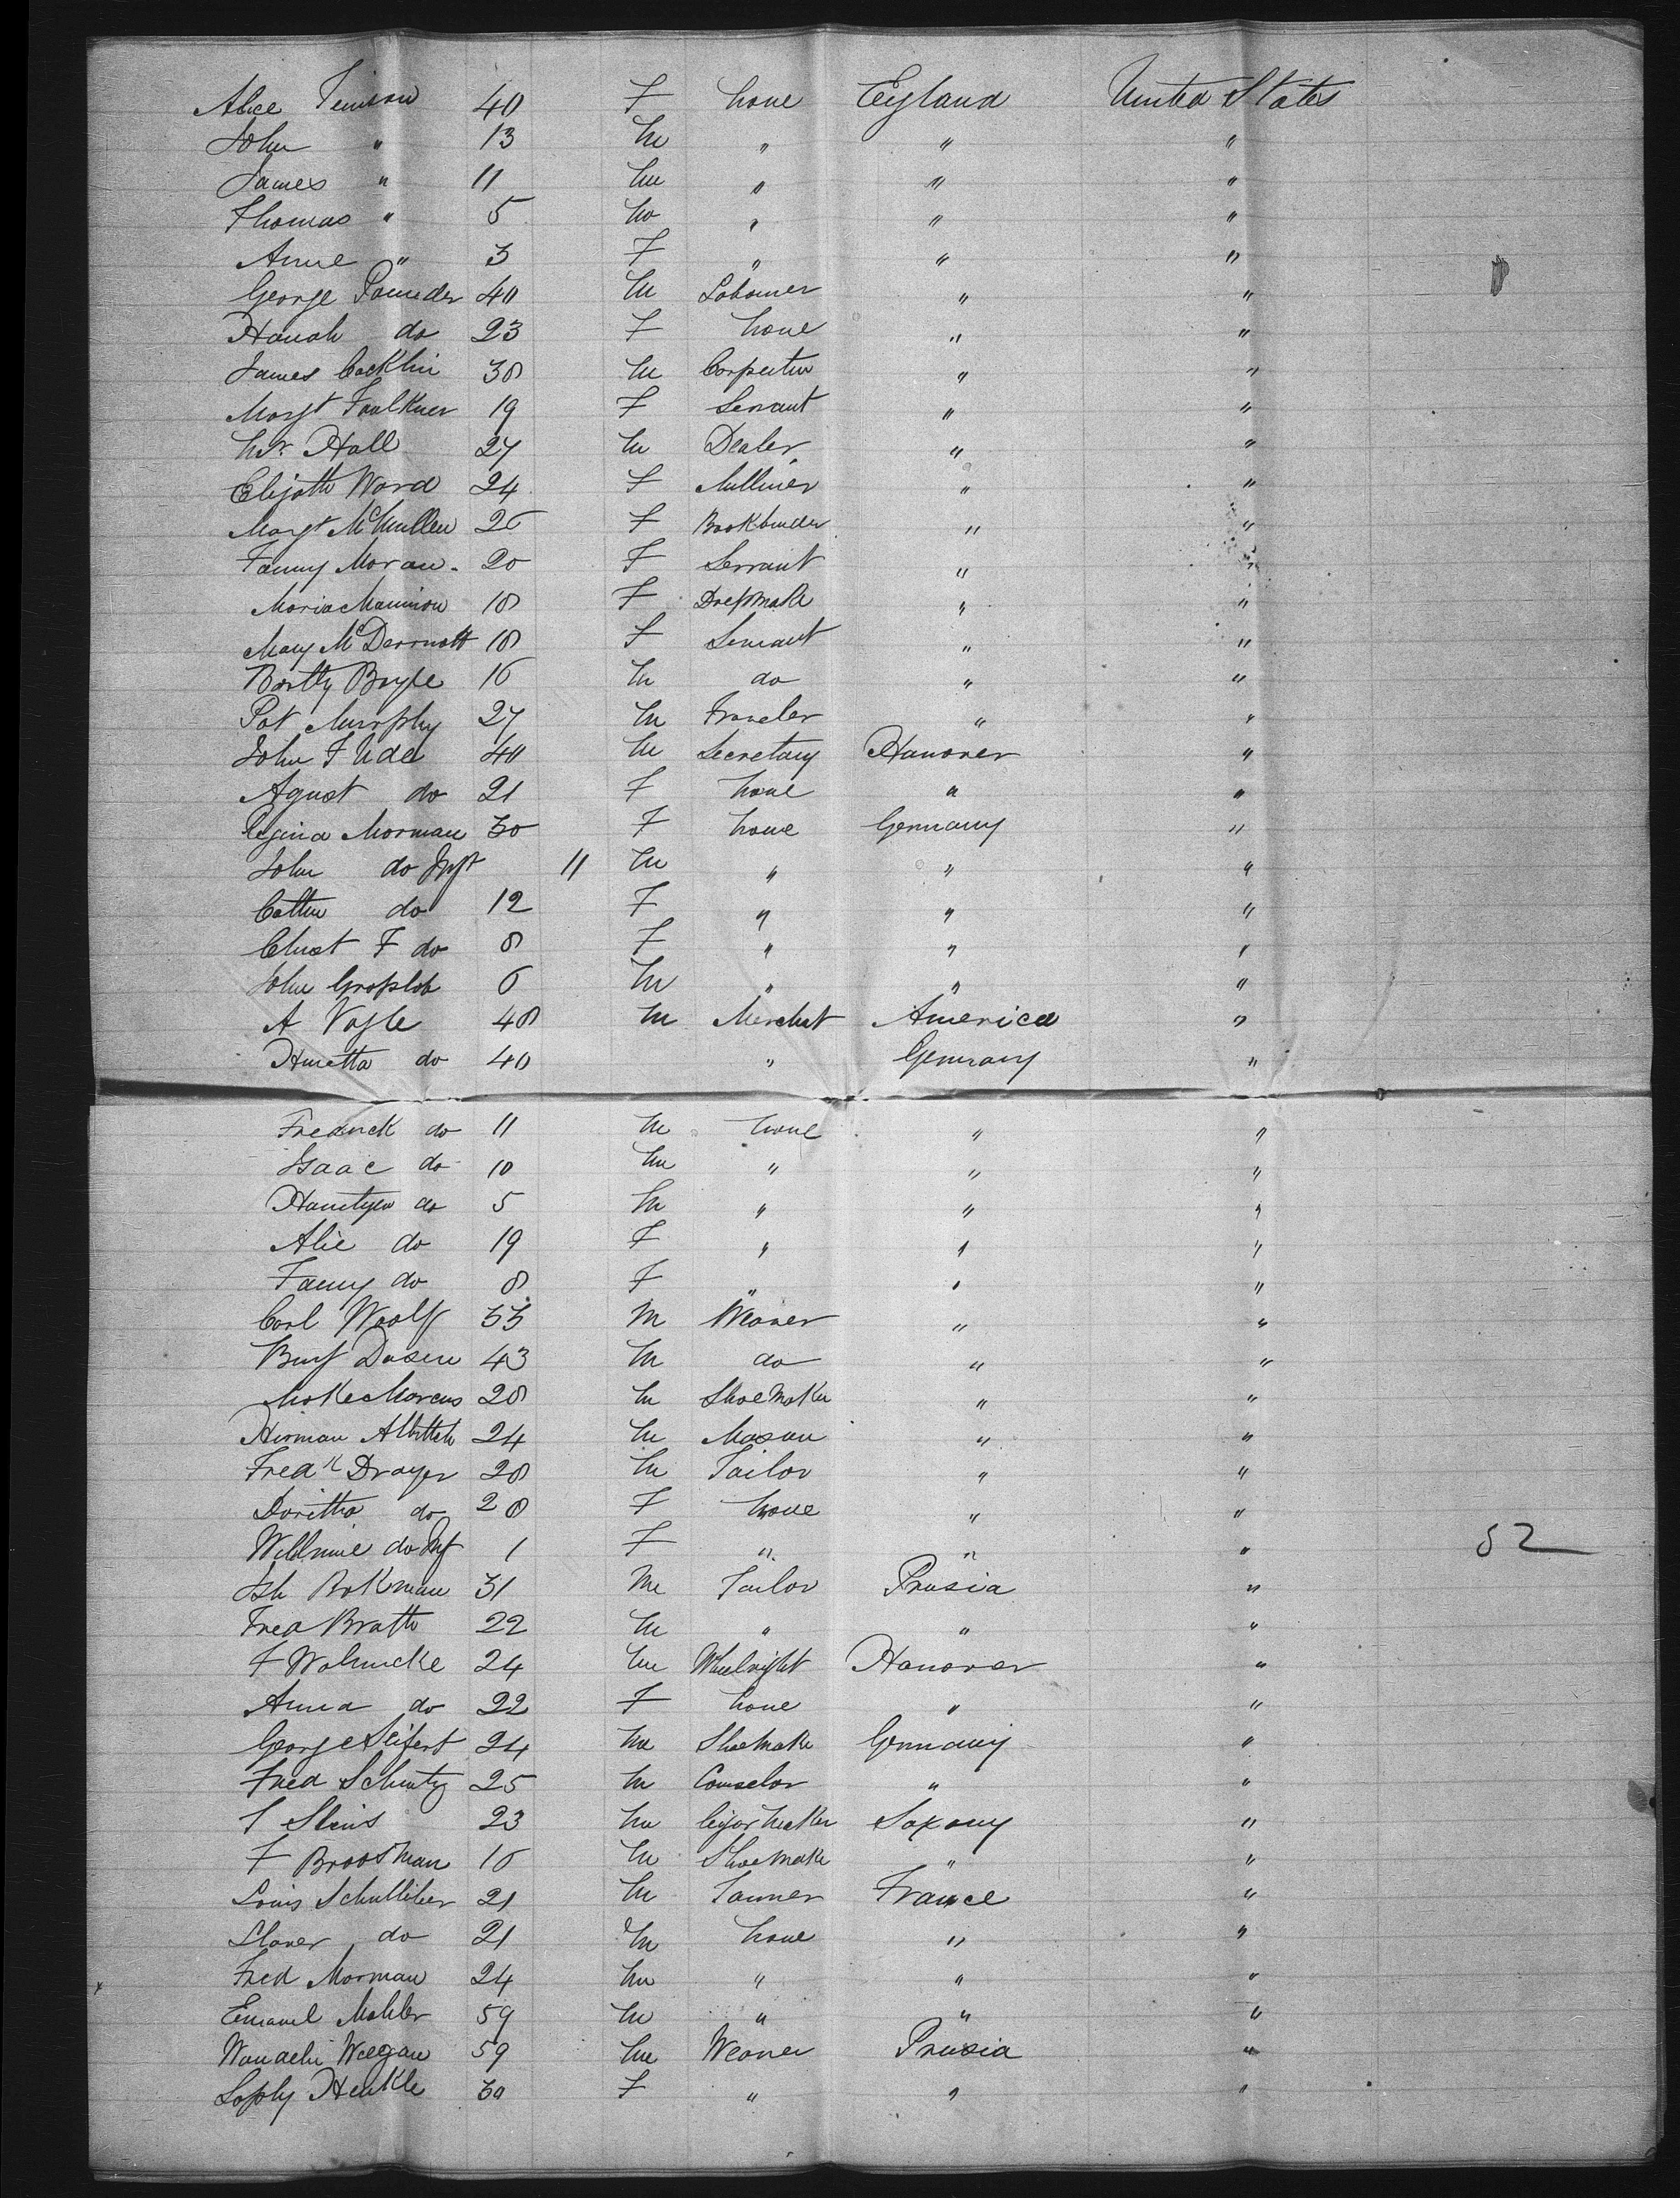 Alice 40 F none England United States
John " 13 M " " "
James " 11 M " " "
Thomas " 5 M " " "
Anne " 3 F " " "
George Pounder 40 M Labourer " "
Hanah do 23 F none " "
James Cocklin 38 M Carpenter " "
Margt Faulkner 19 F Servant " "
Hall 27 M Dealer " "
Elizath Ward 24 F Milliner " "
Margt McMullen 26 F Bookbinder " "
Fanny Moran 20 F Servant " "
Maria Mannion 18 F Dressmake " "
Mary McDermott 18 F Servant " "
Boyle 16 M do " "
Pat Murphy 27 M Traveler " "
John F Ude 40 M Secretary Hanover "
Agust do 21 F none " "
Regina Morman 30 F none Germany "
John do Inft 11 M " " "
Cathn do 12 F " " "
Christ F do 8 F " " "
John 6 M " " "
A Vogle 48 M Merchat America "
do 40 " Germany "
Fredrick do 11 M none " "
Isaac do 10 M " " "
do 5 M " " "
Alie do 19 F " " "
Fanny do 8 F " " "
Carl Woolf 33 M Weaver " "
43 M do " "
Marcus 28 M Shoemaker " "
Hirman 24 M Mason " "
Fredk Drayer 28 M Tailor " "
Doritha do 28 F none " "
do Inf 1 F " " " 52
Bokman 31 M Tailor Prusia "
Fred Brath 22 M " " "
F 24 M Whelright Hanover "
Anna do 22 F none " "
George Seifert 24 M Shoemake Germany "
Fred Schutz 25 M Counselor " "
23 M Cigar Maker Saxony "
F 16 M Shoemake " "
Louis 21 M Tanner France "
do 21 M none " "
Fred Morman 24 M " " "
Emanuel Mahler 59 M " " "
59 M Weaver Prusia "
Sophy Henkle 30 F " " "